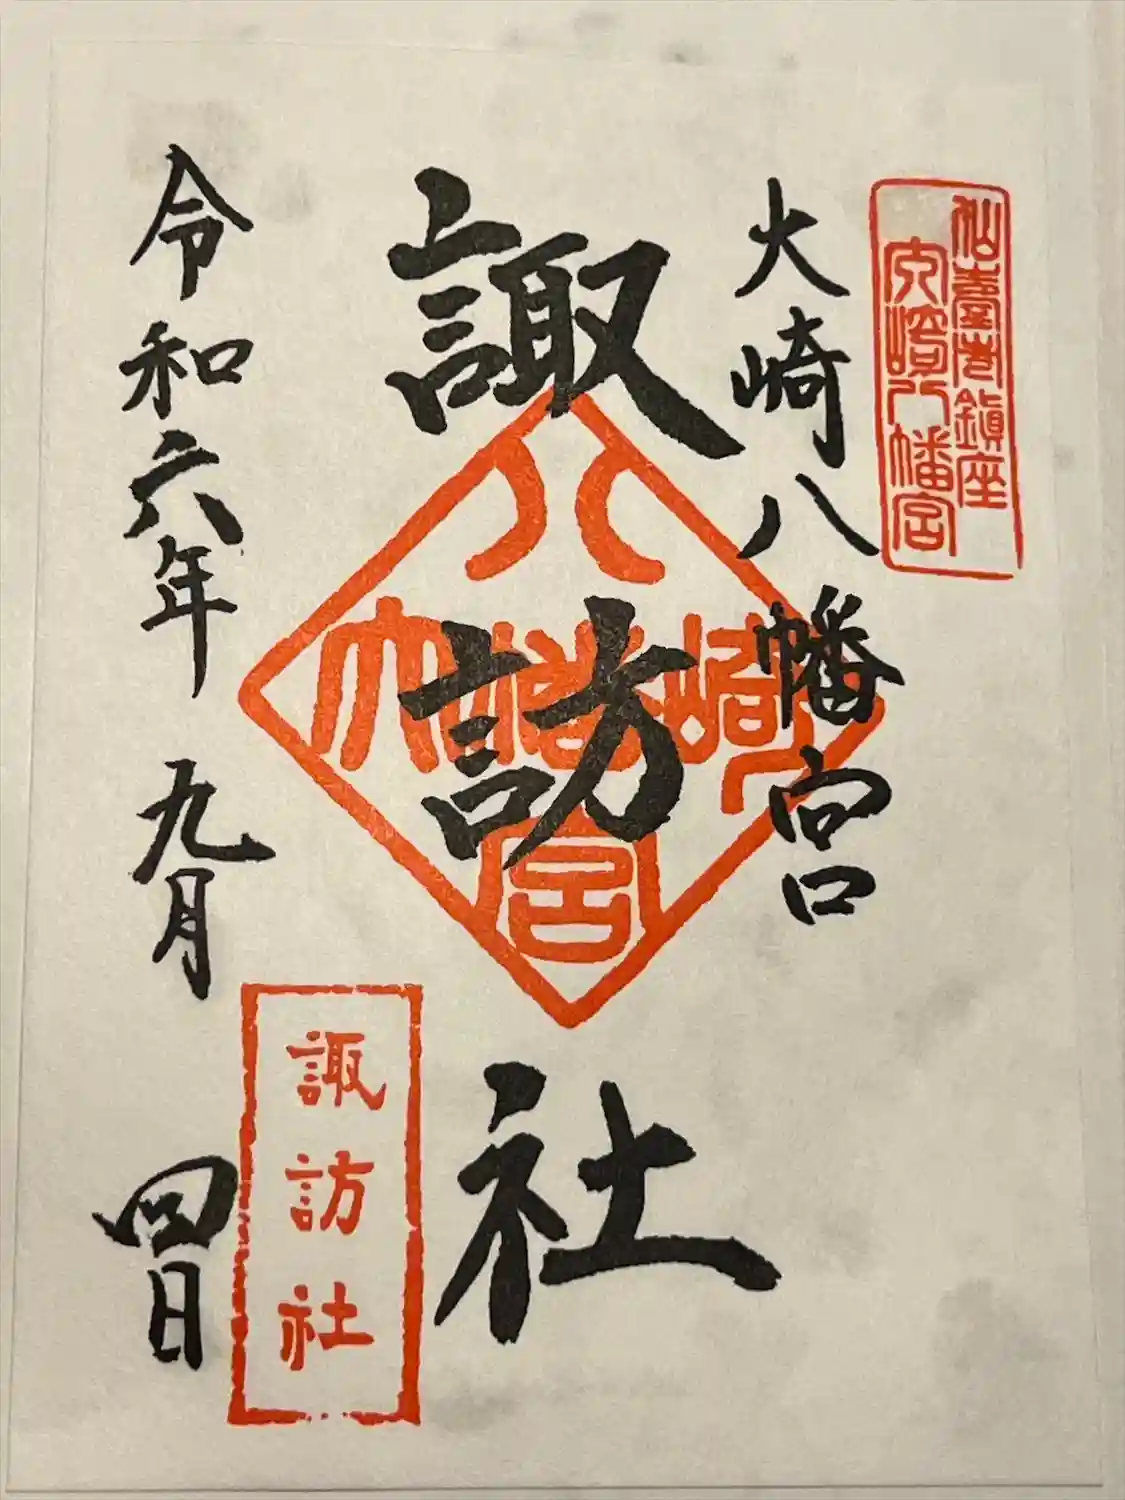 仙臺市鎮座
大崎八幡宮
大崎八幡宮
諏訪社
八幡宮
大崎
諏訪社
令和六年 九月 四日